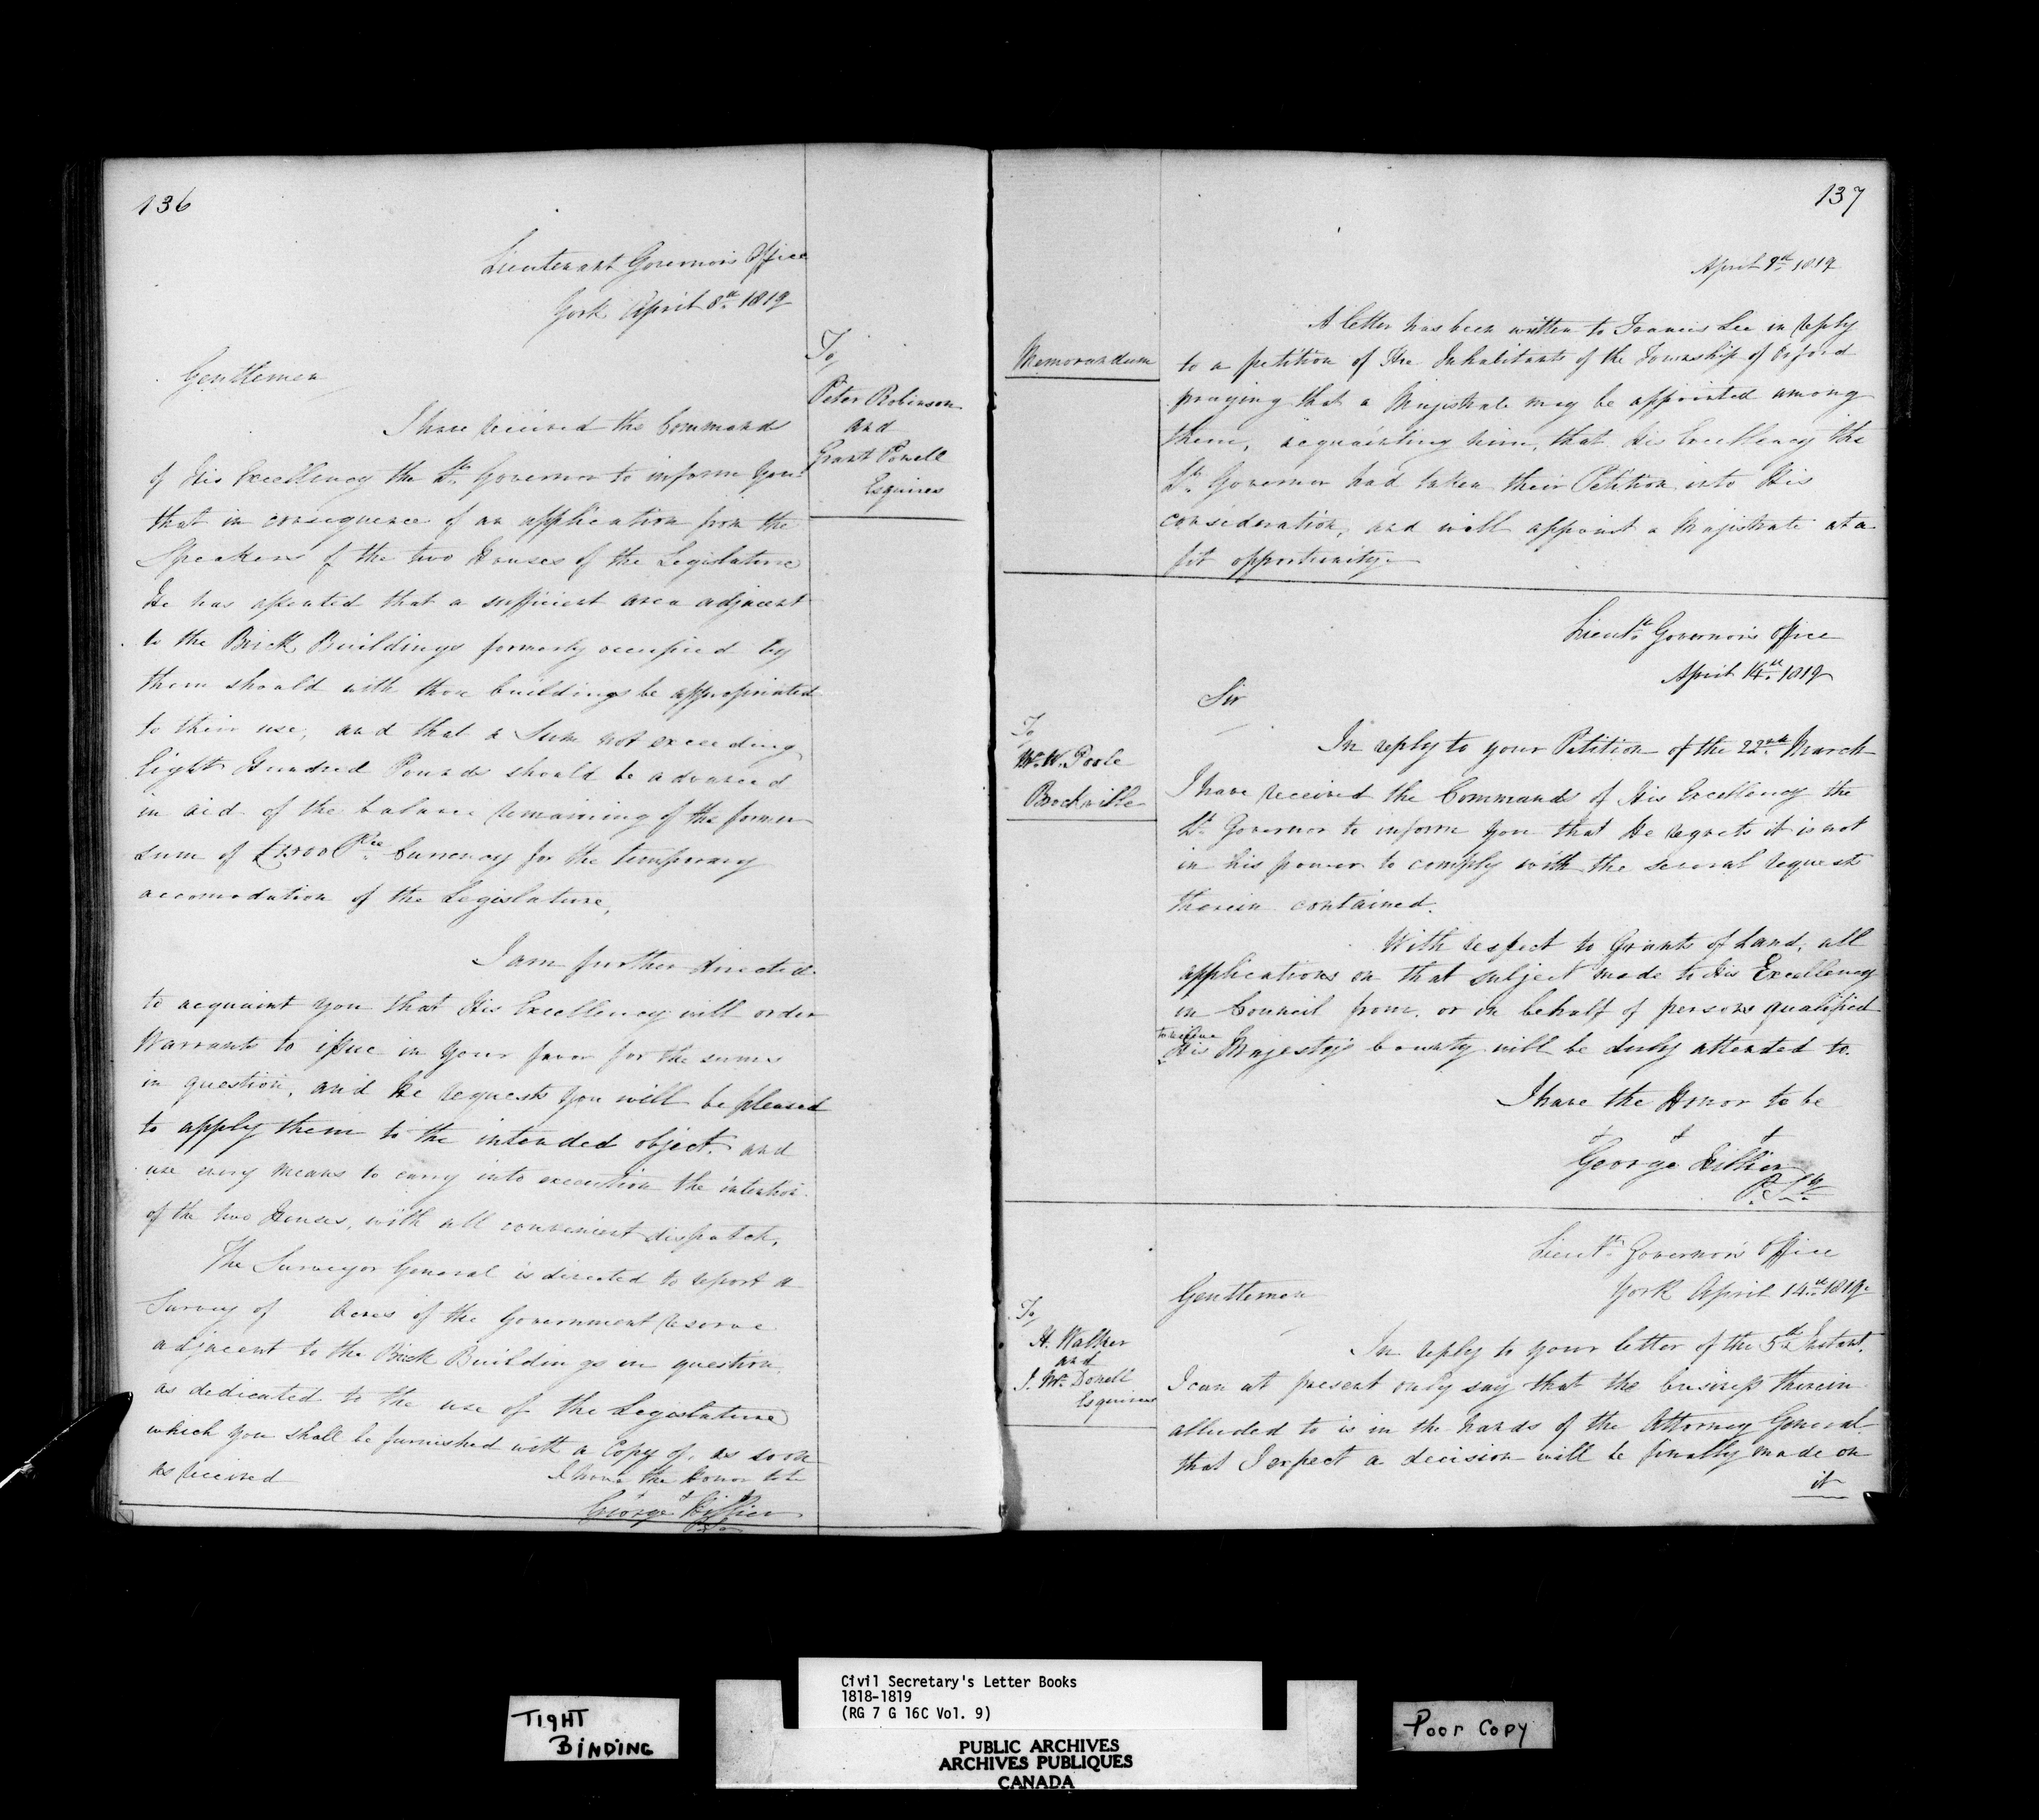 136
Lieutenant Governor's Office
York April 8th 1819
To
Peter Robinson
and
Grant Powell
Esquires
Gentlemen
I have received the Commands
of His Excellency the Lt. Governor to inform You
that in consequence of an application from the
Speakers of the two Houses of the Legislature
He has assented that a sufficient area adjacent
to the Brick Buildings formerly occupied by
them should with those buildings be appropriated
to their use, and that a Sum not exceeding
Eight Hundred Pounds should be advanced
in aid of the balance remaining of the former
sum of Currency for the temporary
accomodation of the Legislature,
I am further directed
to acquaint you that His Excellency will order
Warrants to issue in your favor for the sums
in question, and He requests you will be pleased
to apply them to the intended object, and
use every means to carry into execution the intention
of the two Houses, with all convenient dispatch.
The Surveyor General is directed to report a
Survey of Acres of the Government reserve
adjacent to the Brick Buildings in question,
as dedicated to the use of the Legislature
which you shall be furnished with a Copy of, as soon
as received
I have the honor to be
George Hillier
137
April 9th 1819
Memorandum
A letter has been written to Francis Lee in reply
to a petition of the Inhabitants of the Township of Oxford
praying that a Magistrate may be appointed among
them, acquainting him, that His Excellency the
Lt. Governor had taken their Petition into His
consideration, and will appoint a Magistrate at a
fit opportunity.
Lieut. Governor's Office
April 14th 1819
Sir
To
Mr. W. Poole
Brockville
In reply to your Petition of the 22nd March
I have received the Commands of His Excellency the
Lt. Governor to inform you that He regrets it is not
in his power to comply with the several requests
therein contained.
With respect to Grants of Land, all
applications on that subject made to His Excellency
in Council from, or on behalf of persons qualified
to receive
His Majesty's bounty will be duly attended to.
I have the Honor to be
&c &c &c
George Hillier
P. Sy
Lieut. Governor's Office
York April 14th 1819.
Gentlemen
To
H. Walker
and
J. McDonell
Esquires
In reply to your letter of the 5th Instant,
I can at present only say that the business therein
alluded to is in the hands of the Attorney General
that I expect a decision will be finally made on
it
TIGHT
BINDING
Civil Secretary's Letter Books
1818-1819
(RG 7 G 16C Vol. 9)
PUBLIC ARCHIVES
ARCHIVES PUBLIQUES
CANADA
Poor Copy